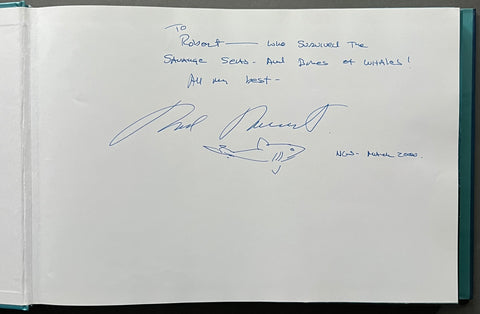 To
Robert — who survived the
Savange Seas - And Bones of Whales!
All my best -
NGS - March 2000.